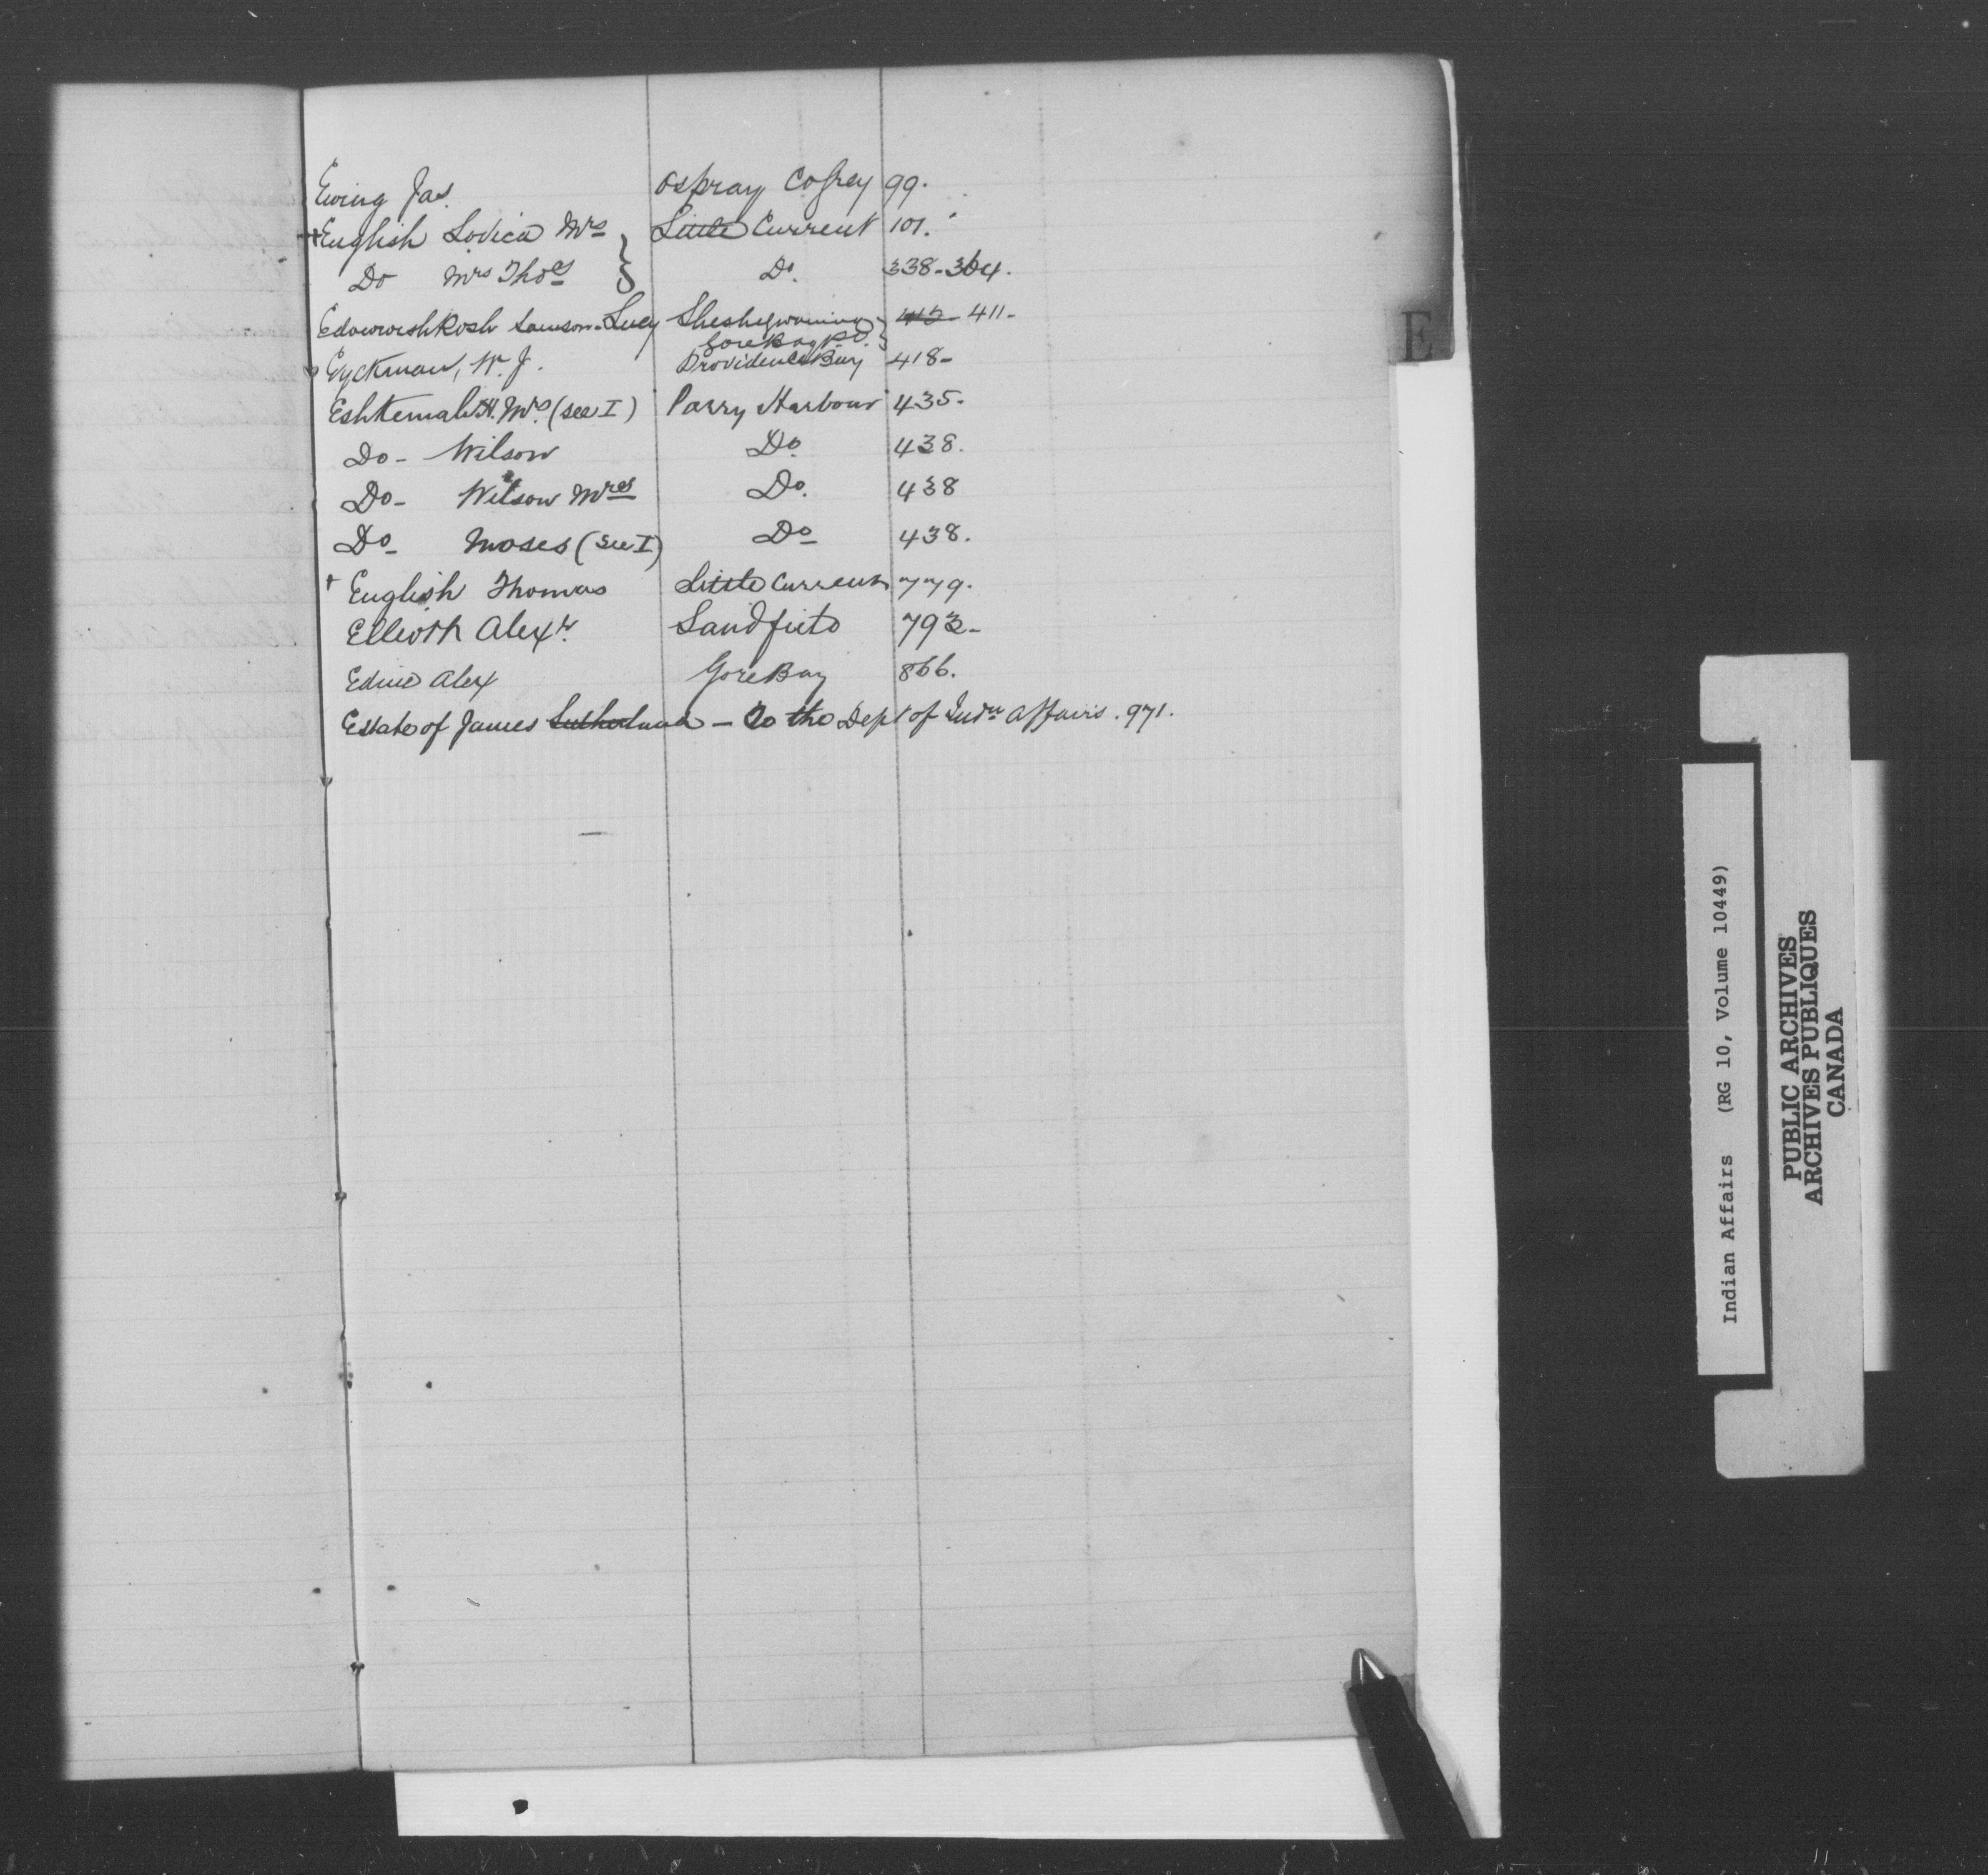 Ewing Jas. Ospray Co Grey 99.
+English Lovica Mrs Little Current 101.
Do Mrs Thos Do. 338-364.
Edowwishkosh Samson-Lucy Sheshegwaning 412- 411-
Gore Bay P.O.
Eyckman, W. J. Providence Bay 418-
Eshkemah H. Mrs. (see I) Parry Harbour 435.
Do- Wilson Do. 438.
Do- Wilson Mrs Do. 438
Do- Moses (see I) Do 438.
+ English Thomas Little Current 779.
Elliott Alexr. Sandfield 793-
Alex Gore Bay 866.
Estate of James Sutherland - To the Dept of Indn Affairs. 971.
E
Indian Affairs (RG 10, Volume 10449)
PUBLIC ARCHIVES
ARCHIVES PUBLIQUES
CANADA